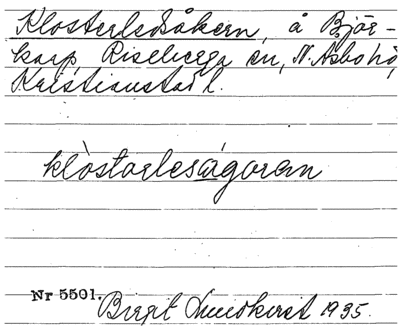 Klosterledsåkern, å Björ-
karp, Riseberga sn, N. Åsbo hd,
Kristianstad l.
klòstarlesågoren
Nr 5501.
Birgit Lundkvist 1935.